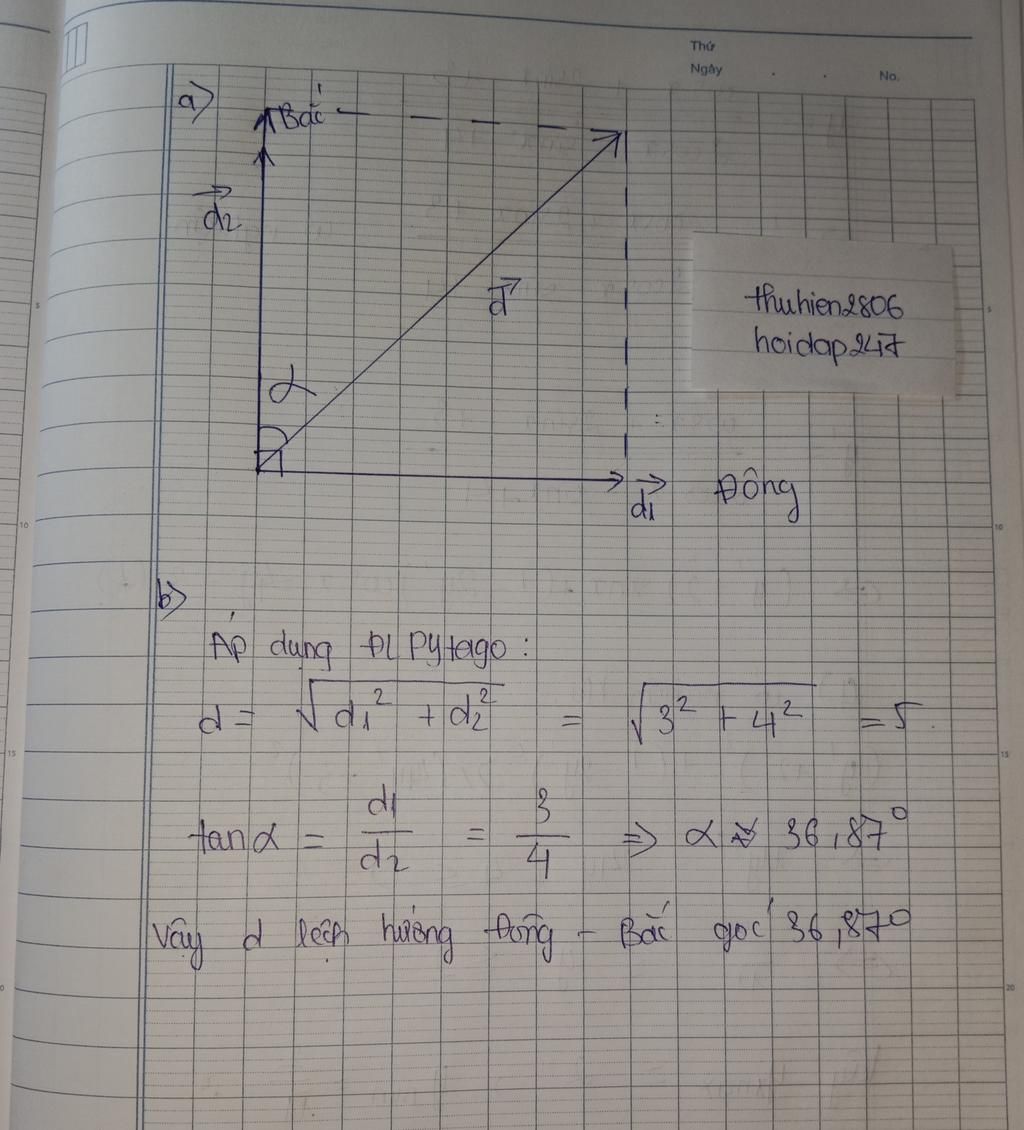 Thứ
Ngày . . No.
a)
Bắc
d2
d
α
thuhien2806
hoidap247
d1 Đông
b)
Áp dụng ĐL Pytago:
d = √d1² + d2² = √3² + 4² = 5.
tanα = d1/d2 = 3/4 ⇒ α ≈ 36,87°
Vậy d lệch hướng Đông - Bắc góc 36,87°
5
10
15
20
5
10